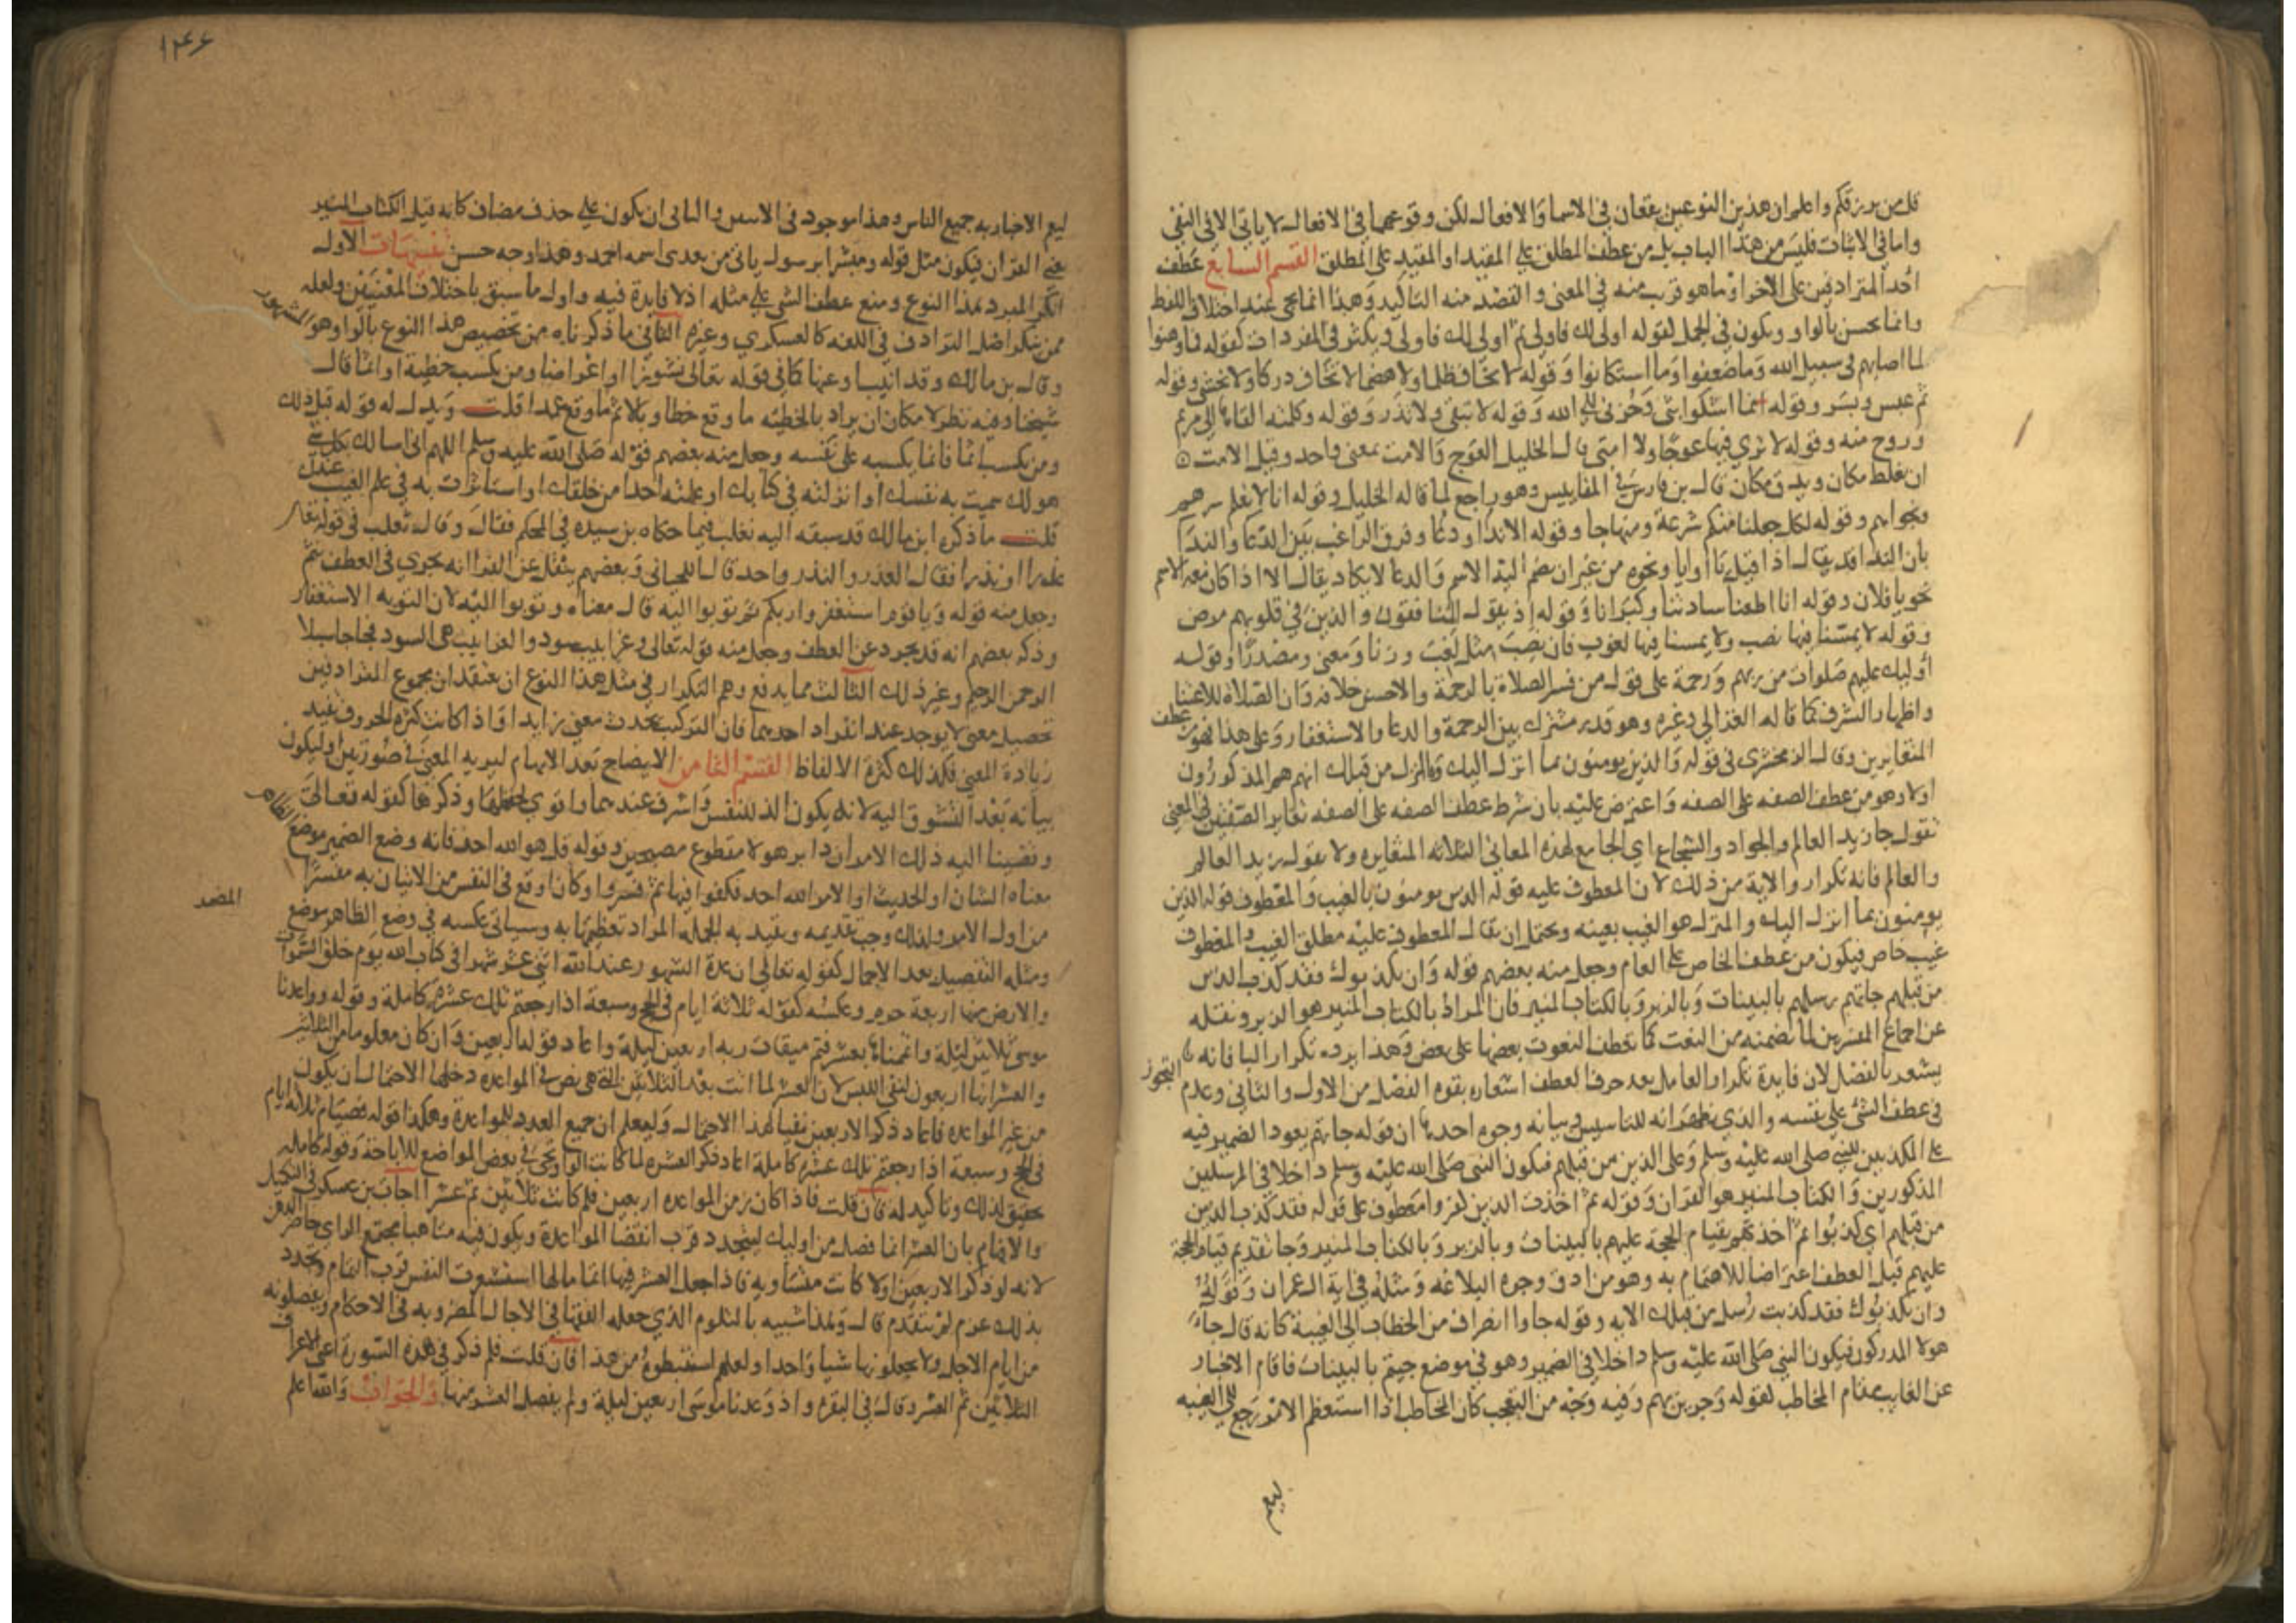 قل من يرزقكم واعلم ان هذين النوعين يقعان في الاسما والافعال لكن وقوعهما في الافعال لا ياتي الا في النفي
واما في الاثبات فليس من هذا الباب بل من عطف المطلق على المقيد او المقيد على المطلق القسم السابع عطف
احد المترادفين على الاخر او ما هو قريب منه في المعنى والقصد منه التاكيد وهذا انما يجي عند اختلاف اللفظ
وانما يحسن بالواو ويكون في الجمل لقوله اولى لك فاولى ثم اولى لك فاولى ويكثر في المفردات كقوله فما وهنوا
لما اصابهم في سبيل الله وما ضعفوا وما استكانوا وقوله لا يخاف ظلما ولا هضما لا تخاف دركا ولا تخشى وقوله
ثم عبس وبسر وقوله انما اشكوا بثي وحزني الى الله وقوله لا تبقي ولا تذر وقوله وكلمته القاها الى مريم
وروح منه وقوله لا ترى فيها عوجا ولا امتى قال الخليل العوج والامت بمعنى واحد وقيل الامت
ان يغلظ مكان ويدق مكان قال بن فارس في المقاييس وهو راجع لما قاله الخليل وقوله انا لا نعلم سرهم
ونجواهم وقوله لكل جعلنا منكم شرعة ومنهاجا وقوله الا ندا ودعا وفرق الراغب بين الدعا والندا
بان الندا قد يقال اذا قيل يا او ايا ونحوه من غير ان يضم اليه الاسم والدعا لا يكاد يقال الا اذا كان معه الاسم
نحو يا فلان وقوله انا اطعنا سادتنا وكبرانا وقوله اذ يقول المنافقون والذين في قلوبهم مرض
وقوله لا يمسنا فيها نصب ولا يمسنا فيها لغوب فان نصب مثل لغب وزنا ومعنى ومصدرا وقوله
اوليك عليهم صلوات من ربهم ورحمة على قول من فسر الصلاة بالرحمة والاحسن خلافه وان الصلاة للاعتنا
واظهار الشرف كما قاله الغزالي وغيره وهو قدر مشترك بين الرحمة والدعا والاستغفار وعلى هذا فهو من عطف
المتغايرين وقال الزمخشري في قوله والذين يومنون بما انزل اليك وما انزل من قبلك انهم هم المذكورون
اولا وهو من عطف الصفه على الصفه واعترض عليه بان شرط عطف الصفه على الصفه تغاير الصفتين في المعنى
تقول جا زيد العالم والجواد والشجاع اي الجامع لهذه المعاني الثلاثه المتغايره ولا تقول زيد العالم
والعالم فانه تكرار والاية من ذلك لان المعطوف عليه قوله الذين يومنون بالغيب والمعطوف قوله الذين
يومنون بما انزل اليك والمنزل هو الغيب بعينه ويحتمل ان يقال المعطوف عليه مطلق الغيب والمعطوف
غيب خاص فيكون من عطف الخاص على العام وجعل منه بعضهم قوله وان يكذبوك فقد كذب الذين
من قبلهم جاتهم رسلهم بالبينات وبالزبر وبالكتاب المنير فان المراد بالكتاب المنير هو الزبر ونقله
عن اجماع المفسرين لما تضمنه من النعت كما تعطف النعوت بعضها على بعض وهذا يرده تكرار البا فانه
يشعر بالفصل لان فايدة تكرار العامل بعد حرف العطف اشعاره بقوه الفصل من الاول والثاني وعدم التجوز
في عطف الشي على نفسه والذي يظهر انه للتاسيس وبيانه وجوه احدها ان قوله جاتهم يعود الضمير فيه
على المكذبين للنبي صلى الله عليه وسلم وعلى الذين من قبلهم فيكون النبي صلى الله عليه وسلم داخلا في المرسلين
المذكورين والكتاب المنير هو القران وقوله ثم اخذت الذين كفروا معطوف على قوله فقد كذب الذين
من قبلهم اي كذبوا ثم اخذتهم بقيام الحجة عليهم بالبينات وبالزبر وبالكتاب المنير وجا تقديم قيام الحجة
عليهم قبل العطف اعتراضا للاهتمام به وهو من ادق وجوه البلاغه ومثله في اية ال عمران وقوله
وان يكذبوك فقد كذبت رسل من قبلك الايه وقوله جاوا انصراف من الخطاب الى الغيبة كانه قال جا
هولا المدركون فيكون النبي صلى الله عليه وسلم داخلا في الضمير وهو في موضع جيتم بالبينات فاقام الاخبار
عن الغايب مقام المخاطب لقوله وجرين بهم وفيه وجه من التعجب كان المخاطب اذا استعظم الامر رجع الى الغيبه
ليعم
١٤٦
ليعم الاخبار به جميع الناس وهذا موجود في الاسس والثاني ان يكون على حذف مضاف كانه قيل الكتاب المنير
يعني القران فيكون مثل قوله ومبشرا برسول ياتي من بعدي اسمه احمد وهذا وجه حسن تنبيهات الاول
انكر المبرد هذا النوع ومنع عطف الشي على مثله اذ لا فايدة فيه واول ما سبق باختلاف المعنيين ولعله
ممن ينكر اصل الترادف في اللغه كالعسكري وغيره الثاني ما ذكرناه من تخصيص هذا النوع بالواو هو المشهور
وقال بن مالك وقد انيبا وعنها كما في قوله تعالى نشوزا او اعراضا ومن يكسب خطية او اثما قال
شيخنا وفيه نظر لامكان ان يراد بالخطيه ما وقع خطا وبالاثم ما وقع عمدا قلت ويدل له قوله قبل ذلك
ومن يكسب اثما فانما يكسبه على نفسه وجعل منه بعضهم قوله صلى الله عليه وسلم اللهم اني اسالك بكل اسم
هو لك سميت به نفسك او انزلته في كتابك او علمته احدا من خلقك او استاثرت به في علم الغيب عندك
قلت ما ذكره ابن مالك قد سبقه اليه ثعلب فيما حكاه بن سيده في المحكم فقال وقال ثعلب في قوله تعالى
عذرا او نذرا فقال العذر والنذر واحد قال اللحياني وبعضهم يثقل عن الفرا انه يجري في العطف بثم
وجعل منه قوله ويا قوم استغفروا ربكم ثم توبوا اليه قال معناه وتوبوا اليه لان التوبه الاستغفار
وذكر بعضهم انه قد يجرد عن العطف وجعل منه قوله تعالى وغرابيب سود والغرابيب هي السود فجاجا سبلا
الرحمن الرحيم وغير ذلك الثالث مما يدفع وهم التكرار في مثل هذا النوع ان يعتقد ان مجموع المترادفين
تحصيل معنى لا يوجد عند انفراد احدهما فان التركيب يحدث معنى زايدا واذا كانت كثرة الحروف تفيد
زيادة المعنى فكذلك كثرة الالفاظ القسم الثامن الايضاح بعد الابهام ليريه المعنى في صورتين وليكون
بيانه بعد التشوق اليه لانه يكون الذ للنفس واشرف عندها واقوى لحفظها وذكرها كقوله تعالى
وقضينا اليه ذلك الامر ان دابر هولا مقطوع مصبحين وقوله قل هو الله احد فانه وضع الضمير موضع الظاهر
معناه الشان او الحديث او الامر الله احد فكفوا فيها ثم فسروا وكان اوقع في النفس من الاتيان به مفسرا
المضمر
من اول الامر ولذلك وجب تقديمه وتفيد به الجمله المراد تعظيمها به وسياتي عكسه في وضع الظاهر موضع
ومثله التفصيل بعد الاجمال كقوله تعالى ان عدة الشهور عند الله اثني عشر شهرا في كتاب الله يوم خلق السموات
والارض منها اربعة حرم وعكسه كقوله ثلاثة ايام في الحج وسبعة اذا رجعتم تلك عشرة كاملة وقوله وواعدنا
موسى ثلاثين ليلة واتممناها بعشر فتم ميقات ربه اربعين ليلة واعاد قوله اربعين وان كان معلوما من الثلاثين
والعشر انها اربعون لنفي اللبس لان العشر لما اتت بعد الثلاثين التي هي نص في المواعده دخلها الاحتمال ان يكون
من غير المواعده فاعاد ذكر الاربعين نفيا لهذا الاحتمال وليعلم ان جميع العدد للمواعدة وهكذا قوله فصيام ثلاثه ايام
في الحج وسبعة اذا رجعتم تلك عشرة كاملة اعاد ذكر العشره لما كانت الواو تجي في بعض المواضع للاباحة وقوله كامله
تحقيق لذلك وتاكيد له فان قلت فاذا كان زمن المواعده اربعين فلم كانت ثلاثين ثم عشرا اجاب بن عسكر في التكميل
والاتمام بان العشر انما فصل من اوليك ليتجدد قرب انقضا المواعدة ويكون فيه متاهبا مجتمع الراي حاضر الذهن
لانه لو ذكر الاربعين اولا كانت متساويه فاذا جعل العشر فيها اتماما لها استشعرت النفس قرب التمام وتجدد
بذلك عزم لم يتقدم قال وهذا شبيه بالتلوم الذي جعله الفقها في الاجال المضروبه في الاحكام ويفصلونه
من ايام الاجل ولا يجعلونها شيا واحدا ولعلهم استنبطوه من هذا فان قلت فلم ذكر في هذه السورة اعني الاعراف
الثلاثين ثم العشر وقال في البقره واذ وعدنا موسى اربعين ليلة ولم يفصل العشر منها والجواب والله اعلم